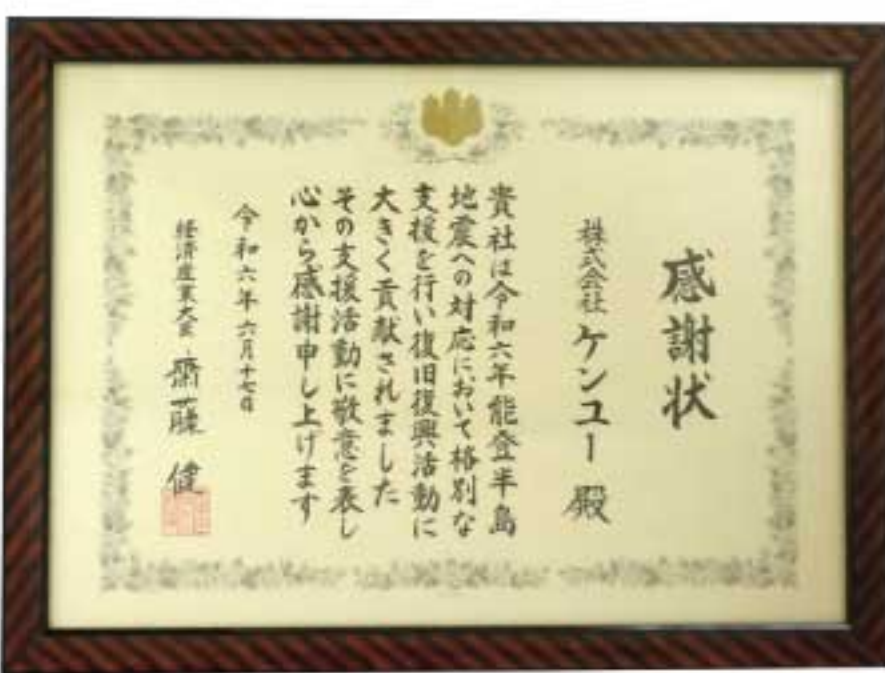 感謝状
株式会社 ケンユー 殿
貴社は令和六年能登半島
地震への対応において格別な
支援を行い復旧復興活動に
大きく貢献されました
その支援活動に敬意を表し
心から感謝申し上げます
令和六年六月十七日
経済産業大臣 齋藤 健